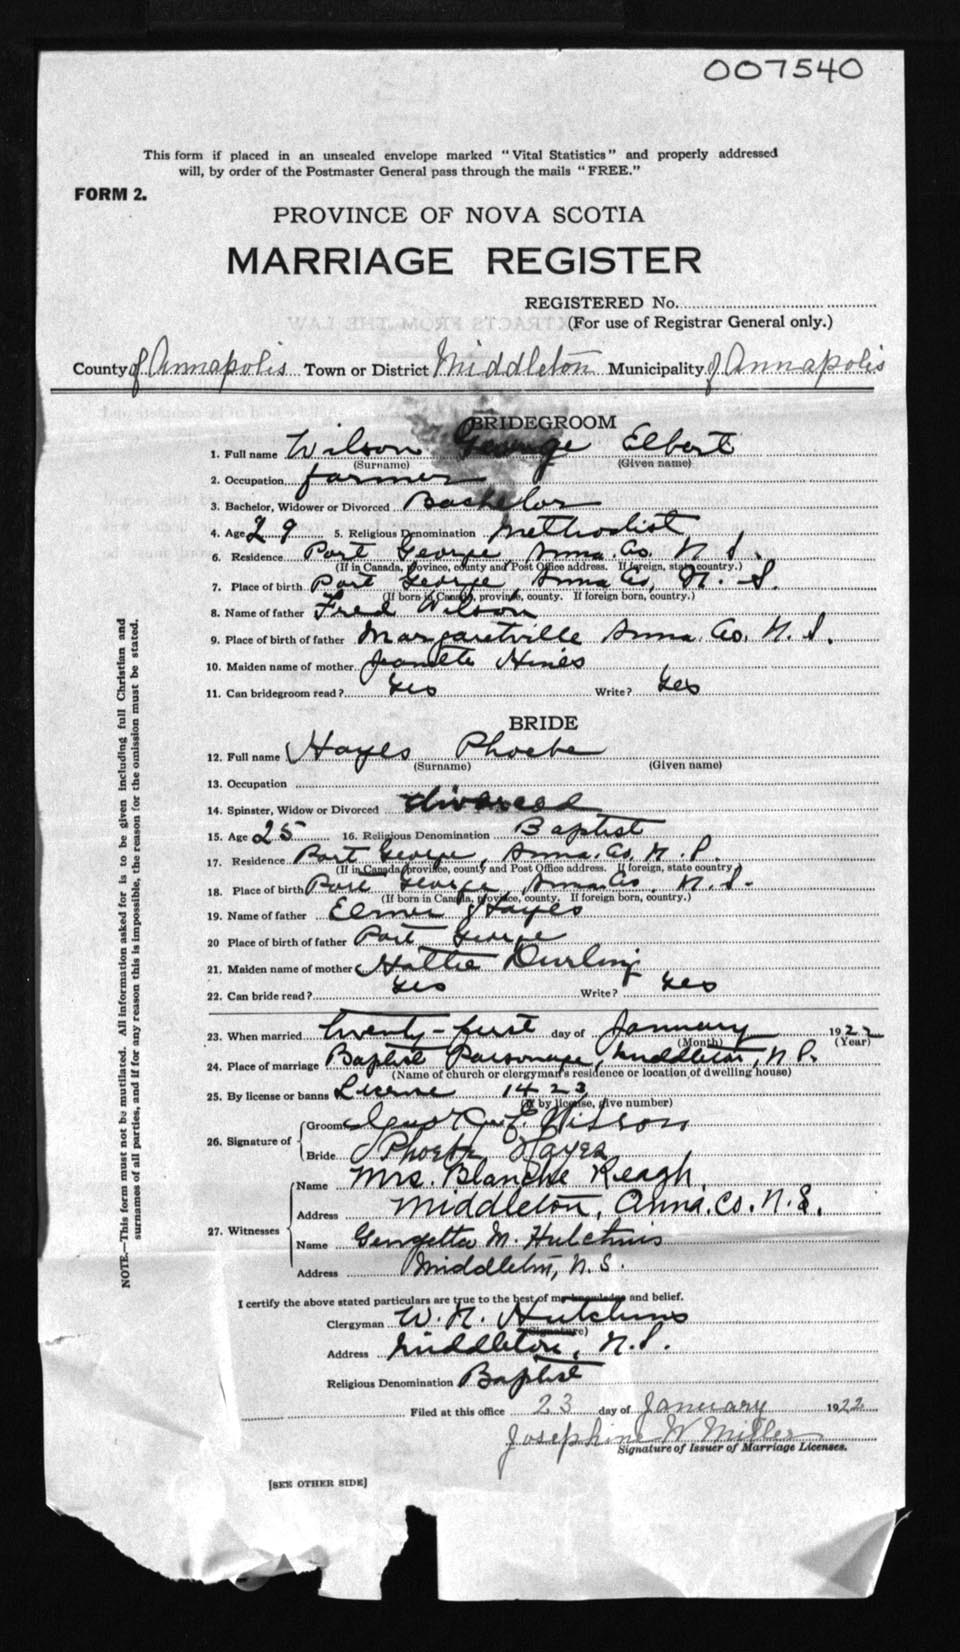 007540
This form if placed in an unsealed envelope marked "Vital Statistics" and properly addressed
will, by order of the Postmaster General pass through the mails "FREE."
FORM 2.
PROVINCE OF NOVA SCOTIA
MARRIAGE REGISTER
REGISTERED No.
(For use of Registrar General only.)
County of Annapolis Town or District Middleton Municipality of Annapolis
BRIDEGROOM
1. Full name Wilson George Elbert
(Surname) (Given name)
2. Occupation farmer
3. Bachelor, Widower or Divorced Bachelor
4. Age 29 5. Religious Denomination Methodist
6. Residence Port George, Anna. Co. N. S.
(If in Canada, province, county and Post Office address. If foreign, state country.)
7. Place of birth Port George, Anna Co, N. S.
(If born in Canada, province, county. If foreign born, country.)
8. Name of father Fred Wilson
9. Place of birth of father Margaretville Anna. Co. N. S.
10. Maiden name of mother Jeanette Hines
11. Can bridegroom read? Yes Write? Yes
BRIDE
12. Full name Hayes Phoebe
(Surname) (Given name)
13. Occupation
14. Spinster, Widow or Divorced divorced
15. Age 25 16. Religious Denomination Baptist
17. Residence Port George, Anna. Co. N. S.
(If in Canada, province, county and Post Office address. If foreign, state country)
18. Place of birth Port George, Anna Co. N. S.
(If born in Canada, province, county. If foreign born, country.)
19. Name of father Elmer Hayes
20 Place of birth of father Port George
21. Maiden name of mother Hattie Durling
22. Can bride read? Yes Write? Yes
23. When married twenty-first day of January 1922
(Month) (Year)
24. Place of marriage Baptist Parsonage, Middleton, N. S.
(Name of church or clergyman's residence or location of dwelling house)
25. By license or banns License 1423
(If by license, give number)
26. Signature of
Groom Wilson
Bride Phoebe Hayes
27. Witnesses
Name Mrs. Blanche Reagh,
Address Middleton, Anna. Co. N. S.
Name Georgetta M. Hutchins
Address Middleton, N. S.
I certify the above stated particulars are true to the best of my knowledge and belief.
Clergyman W. N. Hutchins
(Signature)
Address Middleton, N. S.
Religious Denomination Baptist
Filed at this office 23 day of January 1922
Josephine W Miller
Signature of Issuer of Marriage Licenses.
[SEE OTHER SIDE]
NOTE.—This form must not be mutilated. All information asked for is to be given including full Christian and
surnames of all parties, and if for any reason this is impossible, the reason for the omission must be stated.